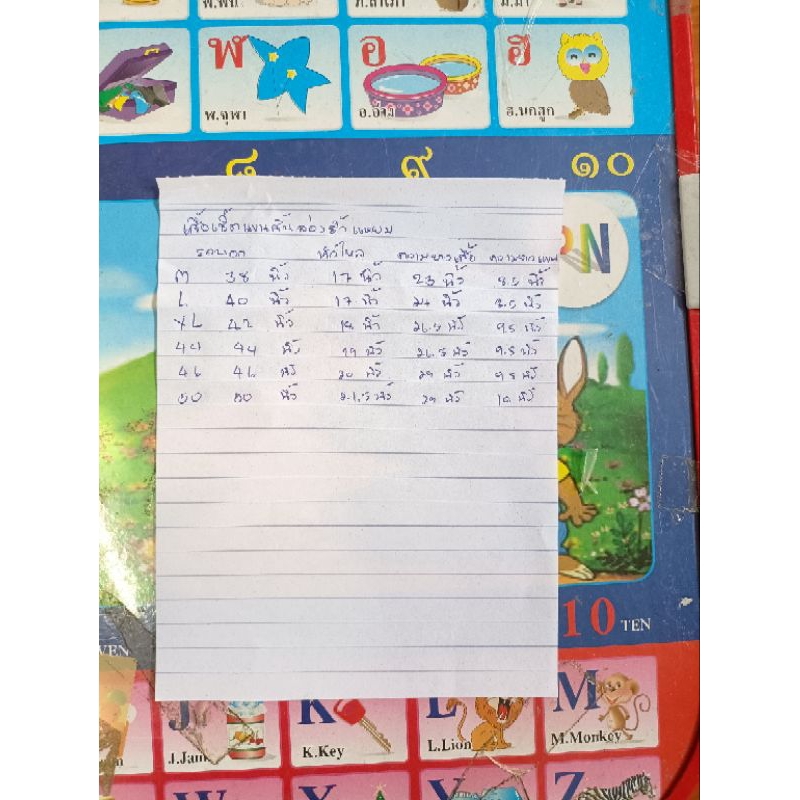 พ.พาน
ภ.สำเภา
ม.ม้า
ฬ
ฬ.จุฬา
อ
อ.อ่าง
ฮ
ฮ.นกฮูก
๘ ๙ ๑๐
เสื้อเชิ้ตแขนสั้น
รอบอก หัวไหล่ ความยาวเสื้อ ความยาวแขน
M 38 นิ้ว 17 นิ้ว 23 นิ้ว 8.5 นิ้ว
L 40 นิ้ว 17 นิ้ว นิ้ว นิ้ว
XL 42 นิ้ว 18 นิ้ว 26.5 นิ้ว 9.5 นิ้ว
44 44 นิ้ว 19 นิ้ว 26.5 นิ้ว 9.5 นิ้ว
46 46 นิ้ว 20 นิ้ว 29 นิ้ว 9.5 นิ้ว
50 50 นิ้ว 21.5 นิ้ว 29 นิ้ว 10 นิ้ว
VEN
10 TEN
J K L M
J.Jam K.Key L.Lion M.Monkey
W X Y Z